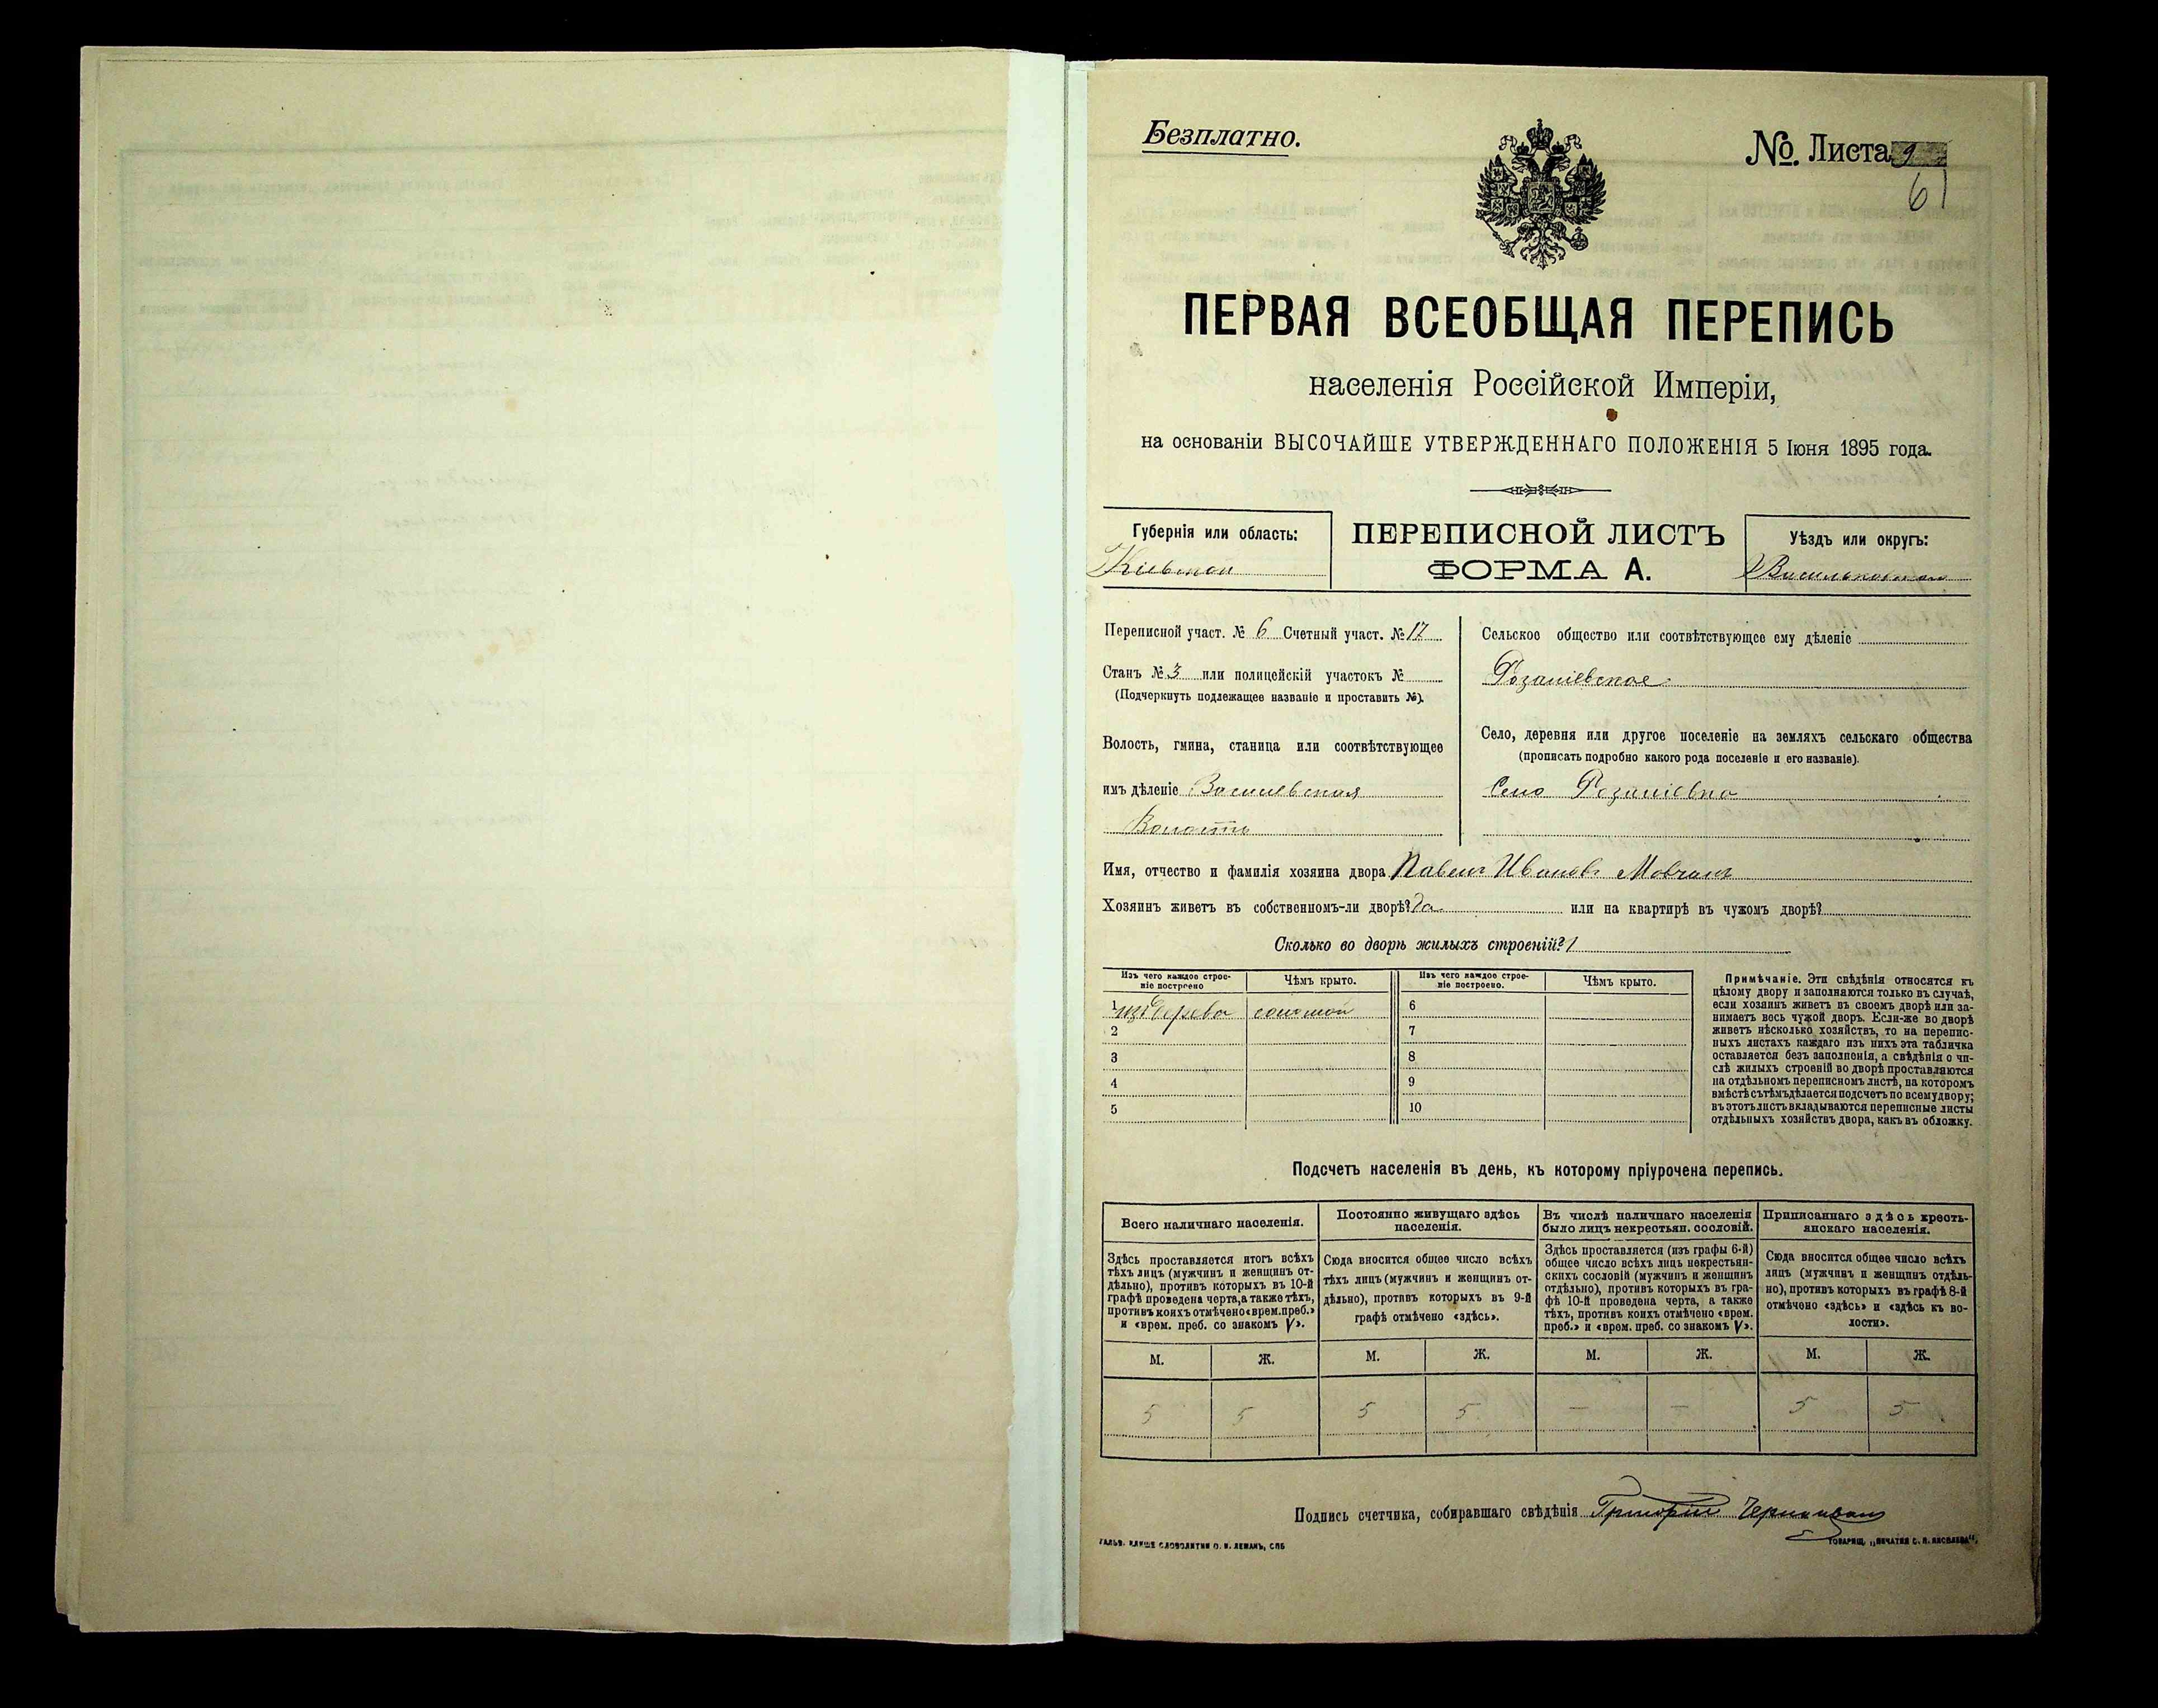 Безплатно.
№. Листа 9
61
ПЕРВАЯ ВСЕОБЩАЯ ПЕРЕПИСЬ
населенія Россійской Имперіи,
на основаніи ВЫСОЧАЙШЕ УТВЕРЖДЕННАГО ПОЛОЖЕНІЯ 5 Іюня 1895 года.
Губернія или область:
Кіевская
ПЕРЕПИСНОЙ ЛИСТЪ
ФОРМА А.
Уѣздъ или округъ:
Переписной участ. № 6 Счетный участ. № 17
Станъ № 3 или полицейскій участокъ №
(Подчеркнуть подлежащее названіе и проставить №).
Волость, гмина, станица или соотвѣтствующее
имъ дѣленіе
Волость
Сельское общество или соотвѣтствующее ему дѣленіе
Село, деревня или другое поселеніе на земляхъ сельскаго общества
(прописать подробно какого рода поселеніе и его названіе).
Село
Имя, отчество и фамилія хозяина двора Павелъ Ивановъ Мовчанъ
Хозяинъ живетъ въ собственномъ-ли дворѣ? Да или на квартирѣ въ чужомъ дворѣ?
Сколько во дворѣ жилыхъ строеній? 1
Изъ чего каждое строе-
ніе построено
Чѣмъ крыто.
Изъ чего каждое строе-
ніе построено.
Чѣмъ крыто.
1 изъ дерева соломой
2
3
4
5
6
7
8
9
10
Примѣчаніе. Эти свѣдѣнія относятся къ
цѣлому двору и заполняются только въ случаѣ,
если хозяинъ живетъ въ своемъ дворѣ или за-
нимаетъ весь чужой дворъ. Если-же во дворѣ
живетъ нѣсколько хозяйствъ, то на перепис-
ныхъ листахъ каждаго изъ нихъ эта табличка
оставляется безъ заполненія, а свѣдѣнія о чи-
слѣ жилыхъ строеній во дворѣ проставляются
на отдѣльномъ переписномъ листѣ, на которомъ
вмѣстѣ съ тѣмъ дѣлается подсчетъ по всему двору;
въ этотъ листъ вкладываются переписные листы
отдѣльныхъ хозяйствъ двора, какъ въ обложку.
Подсчетъ населенія въ день, къ которому пріурочена перепись.
Всего наличнаго населенія.
Здѣсь проставляется итогъ всѣхъ
тѣхъ лицъ (мужчинъ и женщинъ от-
дѣльно), противъ которыхъ въ 10-й
графѣ проведена черта, а также тѣхъ,
противъ коихъ отмѣчено «врем. преб.»
и «врем. преб. со знакомъ V».
Постоянно живущаго здѣсь
населенія.
Сюда вносится общее число всѣхъ
тѣхъ лицъ (мужчинъ и женщинъ от-
дѣльно), противъ которыхъ въ 9-й
графѣ отмѣчено «здѣсь».
Въ числѣ наличнаго населенія
было лицъ некрестьян. сословій.
Здѣсь проставляется (изъ графы 6-й)
общее число всѣхъ лицъ некрестьян-
скихъ сословій (мужчинъ и женщинъ
отдѣльно), противъ которыхъ въ гра-
фѣ 10-й проведена черта, а также
тѣхъ, противъ коихъ отмѣчено «врем.
преб.» и «врем. преб. со знакомъ V».
Приписаннаго здѣсь кресть-
янскаго населенія.
Сюда вносится общее число всѣхъ
лицъ (мужчинъ и женщинъ отдѣль-
но), противъ которыхъ въ графѣ 8-й
отмѣчено «здѣсь» и «здѣсь къ во-
лости».
М. Ж. М. Ж. М. Ж. М. Ж.
5 5 5 5 — — 5 5
Подпись счетчика, собиравшаго свѣдѣнія Григорій
ГАЛЬВ. КЛИШЕ СЛОВОЛИТНИ О. И. ЛЕМАНЪ, СПБ